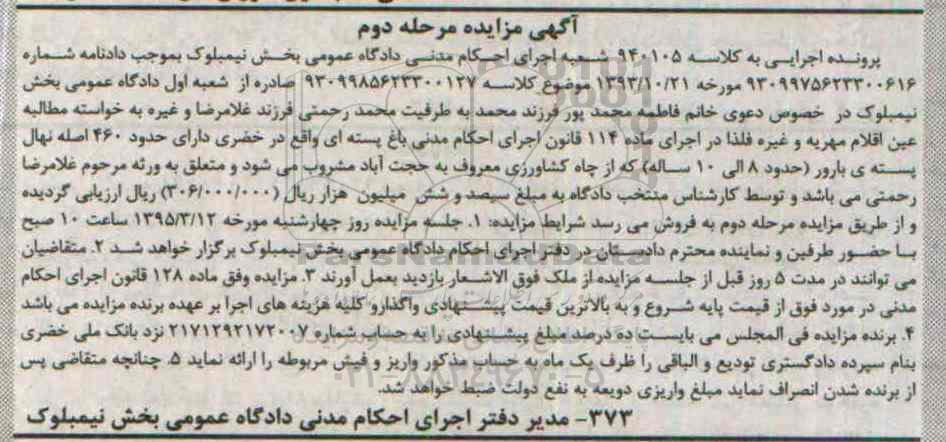 آگهی مزایده مرحله دوم
پرونده اجرایی به کلاسه ۹۴۰۱۰۵ شعبه اجرای احکام مدنی دادگاه عمومی بخش نیمبلوک بموجب دادنامه شماره
۹۳۰۹۹۷۵۶۲۳۳۰۰۶۱۶ مورخه ۱۳۹۳/۱۰/۲۱ موضوع کلاسه ۹۳۰۹۹۸۵۶۲۳۳۰۰۱۲۷ صادره از شعبه اول دادگاه عمومی بخش
نیمبلوک در خصوص دعوی خانم فاطمه محمد پور فرزند محمد به طرفیت محمد رحمتی فرزند غلامرضا و غیره به خواسته مطالبه
عین اقلام مهریه و غیره فلذا در اجرای ماده ۱۱۴ قانون اجرای احکام مدنی باغ پسته ای واقع در خضری دارای حدود ۴۶۰ اصله نهال
پسته ی بارور (حدود ۸ الی ۱۰ ساله) که از چاه کشاورزی معروف به حجت آباد مشروب می شود و متعلق به ورثه مرحوم غلامرضا
رحمتی می باشد و توسط کارشناس منتخب دادگاه به مبلغ سیصد و شش میلیون هزار ریال (۳۰۶/۰۰۰/۰۰۰) ریال ارزیابی گردیده
و از طریق مزایده مرحله دوم به فروش می رسد شرایط مزایده: ۱. جلسه مزایده روز چهارشنبه مورخه ۱۳۹۵/۳/۱۲ ساعت ۱۰ صبح
با حضور طرفین و نماینده محترم دادستان در دفتر اجرای احکام دادگاه عمومی بخش نیمبلوک برگزار خواهد شد ۲. متقاضیان
می توانند در مدت ۵ روز قبل از جلسه مزایده از ملک فوق الاشعار بازدید بعمل آورند ۳. مزایده وفق ماده ۱۲۸ قانون اجرای احکام
مدنی در مورد فوق از قیمت پایه شروع و به بالاترین قیمت پیشنهادی واگذارو کلیه هزینه های اجرا بر عهده برنده مزایده می باشد
۴. برنده مزایده فی المجلس می بایست ده درصد مبلغ پیشنهادی را به حساب شماره ۲۱۷۱۲۹۲۱۷۲۰۰۷ نزد بانک ملی خضری
بنام سپرده دادگستری تودیع و الباقی را ظرف یک ماه به حساب مذکور واریز و فیش مربوطه را ارائه نماید ۵. چنانچه متقاضی پس
از برنده شدن انصراف نماید مبلغ واریزی دویعه به نفع دولت ضبط خواهد شد.
۳۷۳- مدیر دفتر اجرای احکام مدنی دادگاه عمومی بخش نیمبلوک